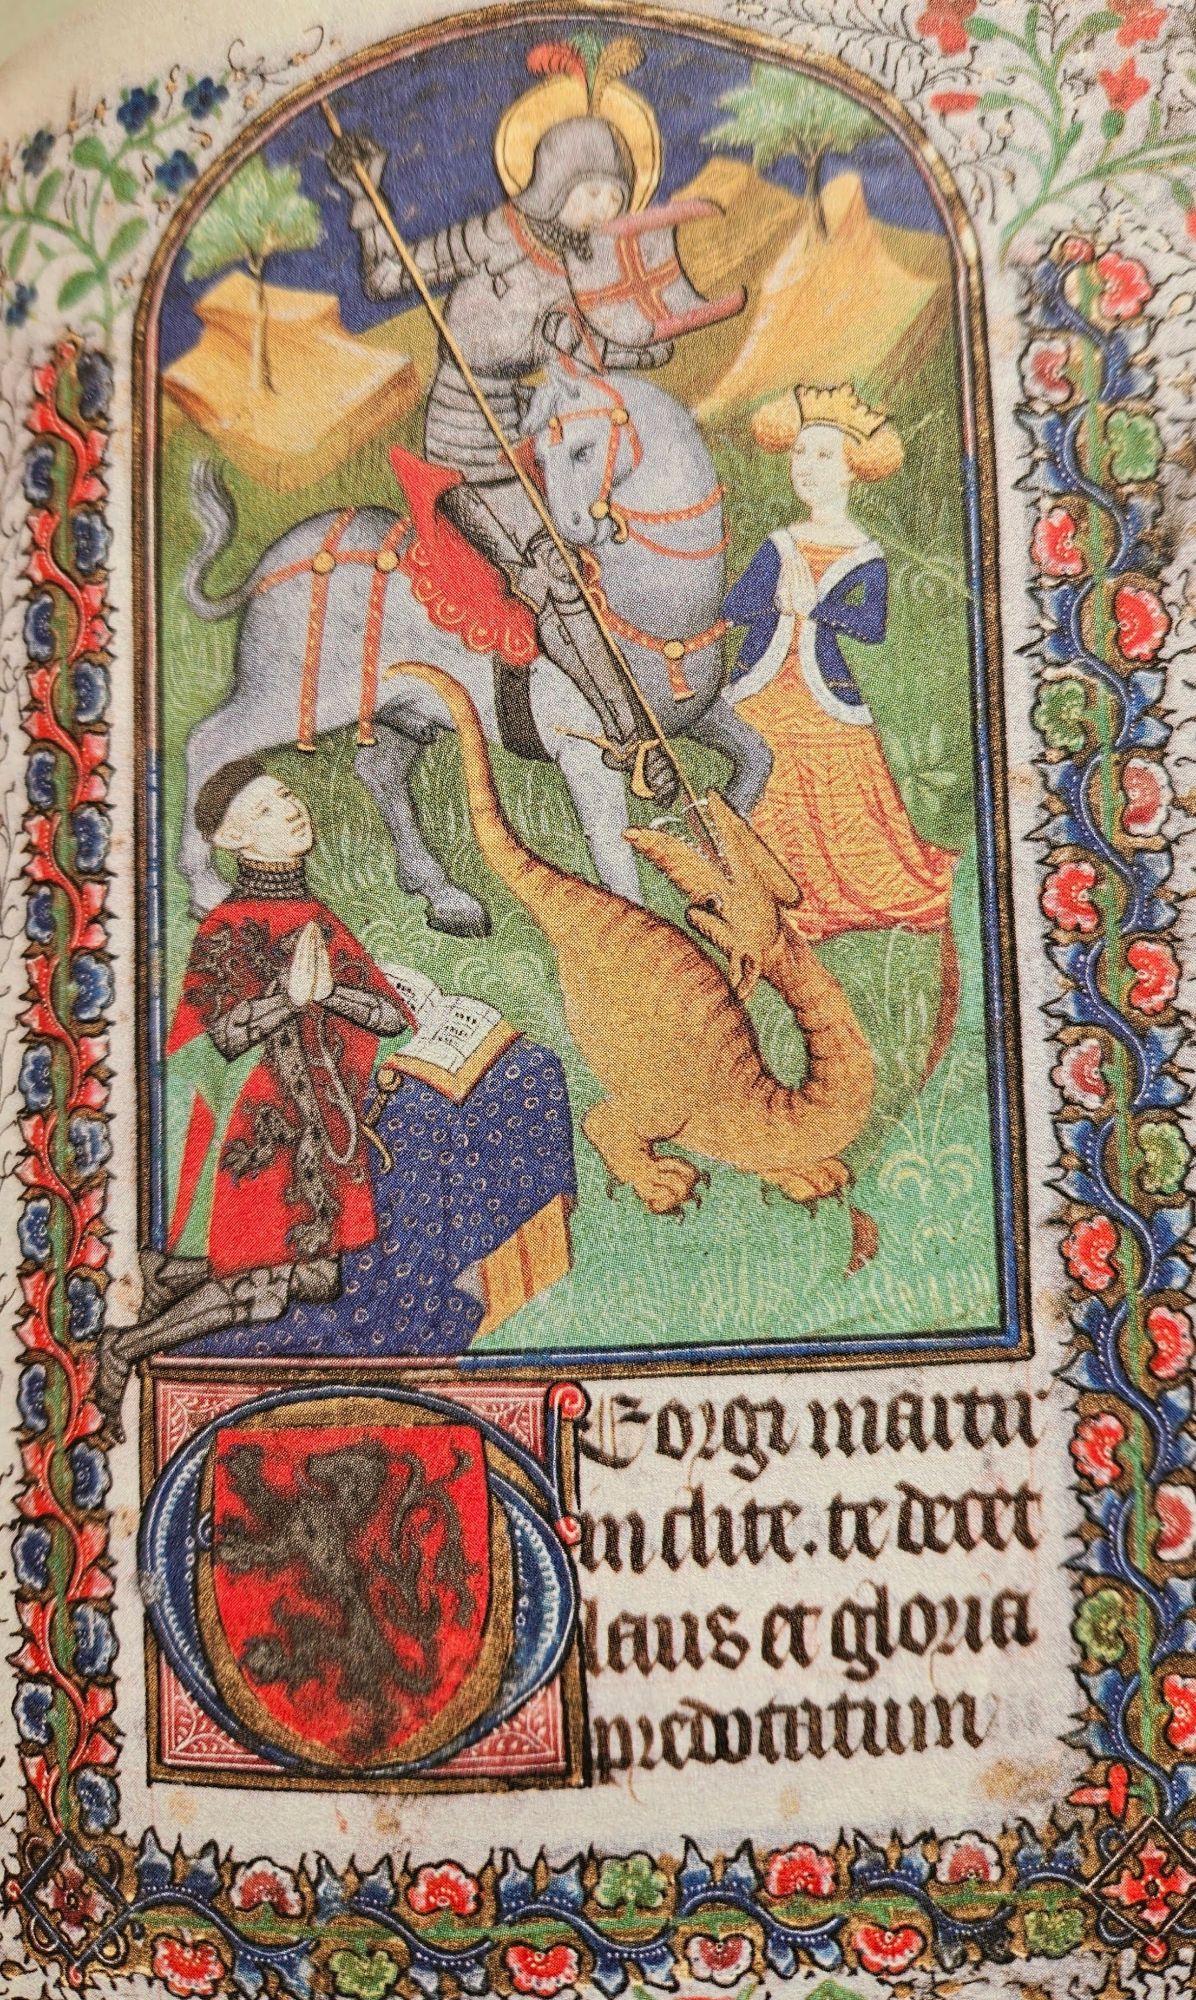 Georgi martir
inclite. te decet
laus et gloria
predotatum